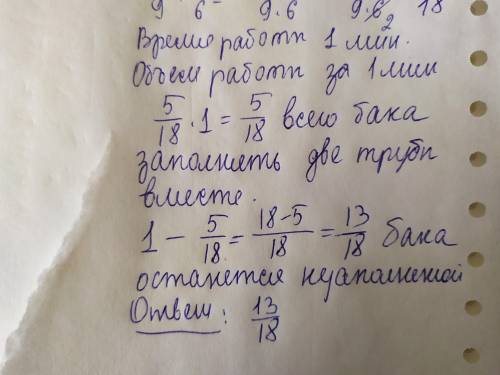 9 6 9·6 9·6 2 18
Время работы 1 мин.
Объем работы за 1 мин
5/18 · 1 = 5/18 всего бака
заполнять две трубы
вместе.
1 - 5/18 = 18-5/18 = 13/18 бака
останется незаполненой
Ответ: 13/18